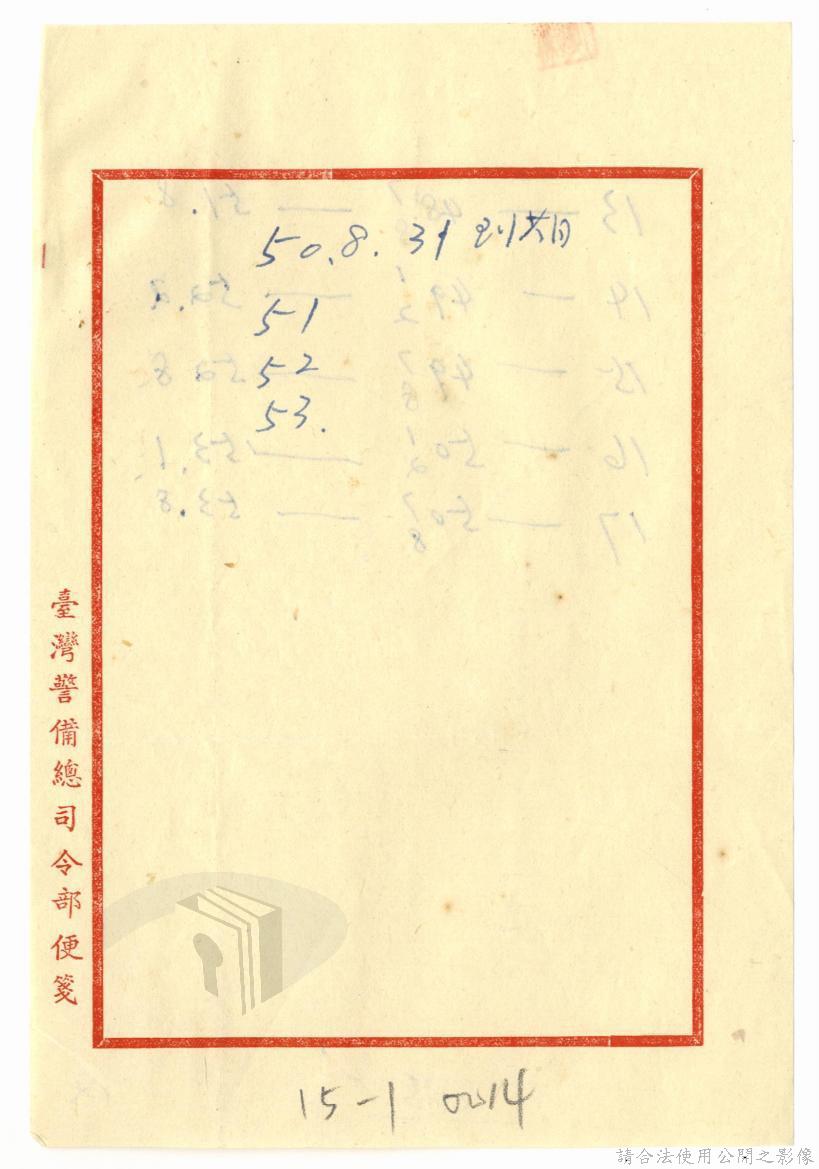 50.8.31 到期
51
52
53.
臺灣警備總司令部便箋
15-1 0014
請合法使用公開之影像